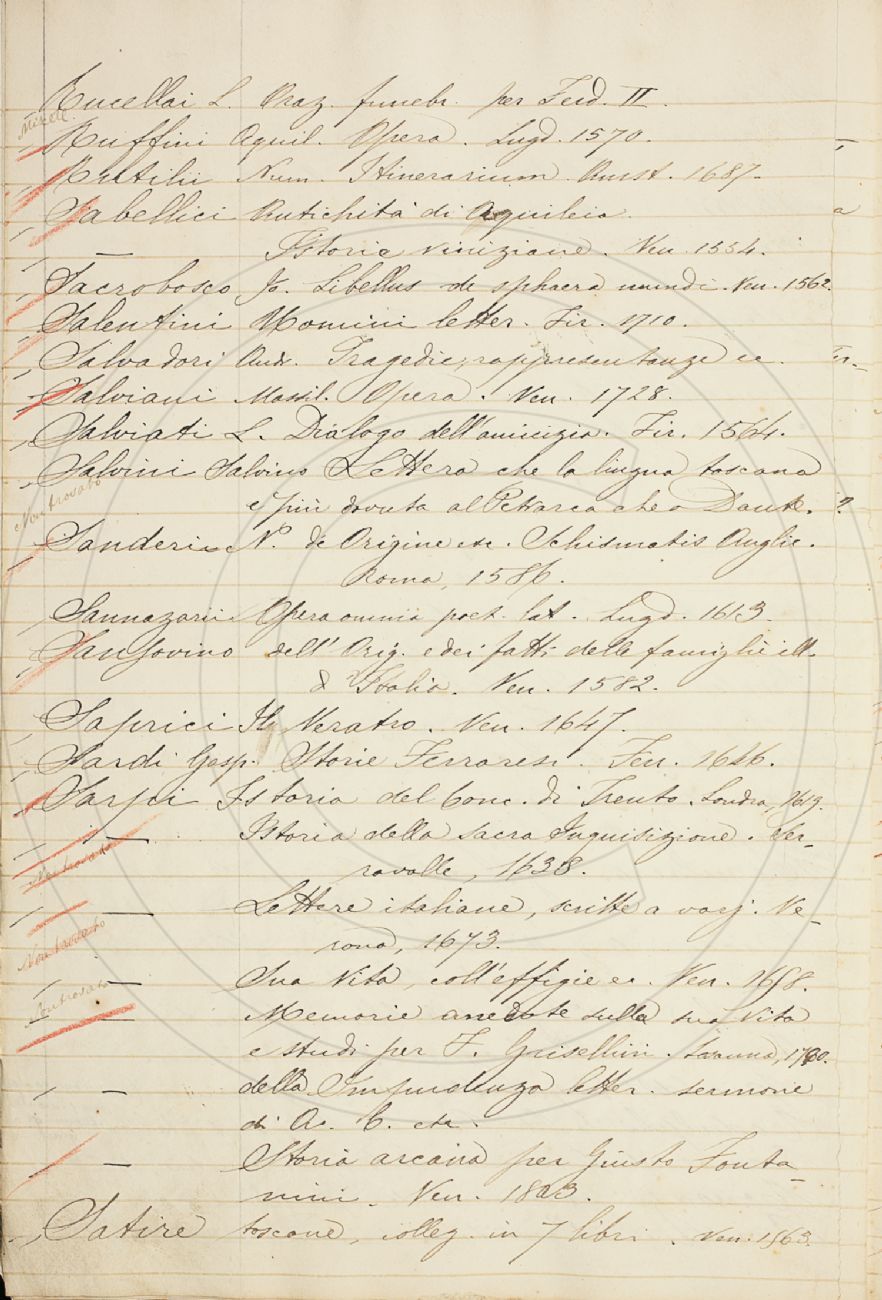 Rucellai L. Oraz. funebr. per Ferd. II.
Ruffini Aquil. Opera. Lugd. 1570. -
Rutilii Num. Itinerarium. Amst. 1687.
Sabellici Antichità di Aquileia. a
— Istorie viniziane. Ven. 1554.
Sacrobosco Jo. Libellus de sphaera mundi. Ven. 1562.
Salentini Uomini letter. Fir. 1710.
Salvadori And. Tragedie, rappresentanze ec.
Salviani Massil. Opera. Ven. 1728.
Salviati L. Dialogo dell'amicizia. Fir. 1564.
Salvini Salvino Lettera che la lingua toscana
Nontrovato
è più dovuta al Petrarca che a Dante. ?
Sanderi N. de Origine etc. Schismatis Anglic.
Roma, 1586.
Sannazarii Opera omnia poet. lat. Lugd. 1613
Sansovino dell' Orig. e dei fatti delle famiglie ill.
d'Italia. Ven. 1582.
Saprici Il Veratro. Ven. 1647.
Sardi Gasp. Storie Ferraresi. Ferr. 1646.
Sarpi Istoria del Conc. di Trento. Londra, 1619.
— Istoria della sacra Inquisizione. Ser-
Nontrovato
ravalle, 1638.
— Lettere italiane, scritte a varj. Ve-
Nontrovato
rona, 1673.
— Sua Vita, coll'effigie ec. Ven. 1658.
Nontrovato
— Memorie anedote sulla sua Vita
e studi per F. Grisellini. Losanna, 1760.
— della Impudenza letter. sermone
di A. C. etc.
— Storia arcana per Giusto Fonta-
nini. Ven. 1803.
Satire toscane, colleg. in 7 libri. Ven. 1563.